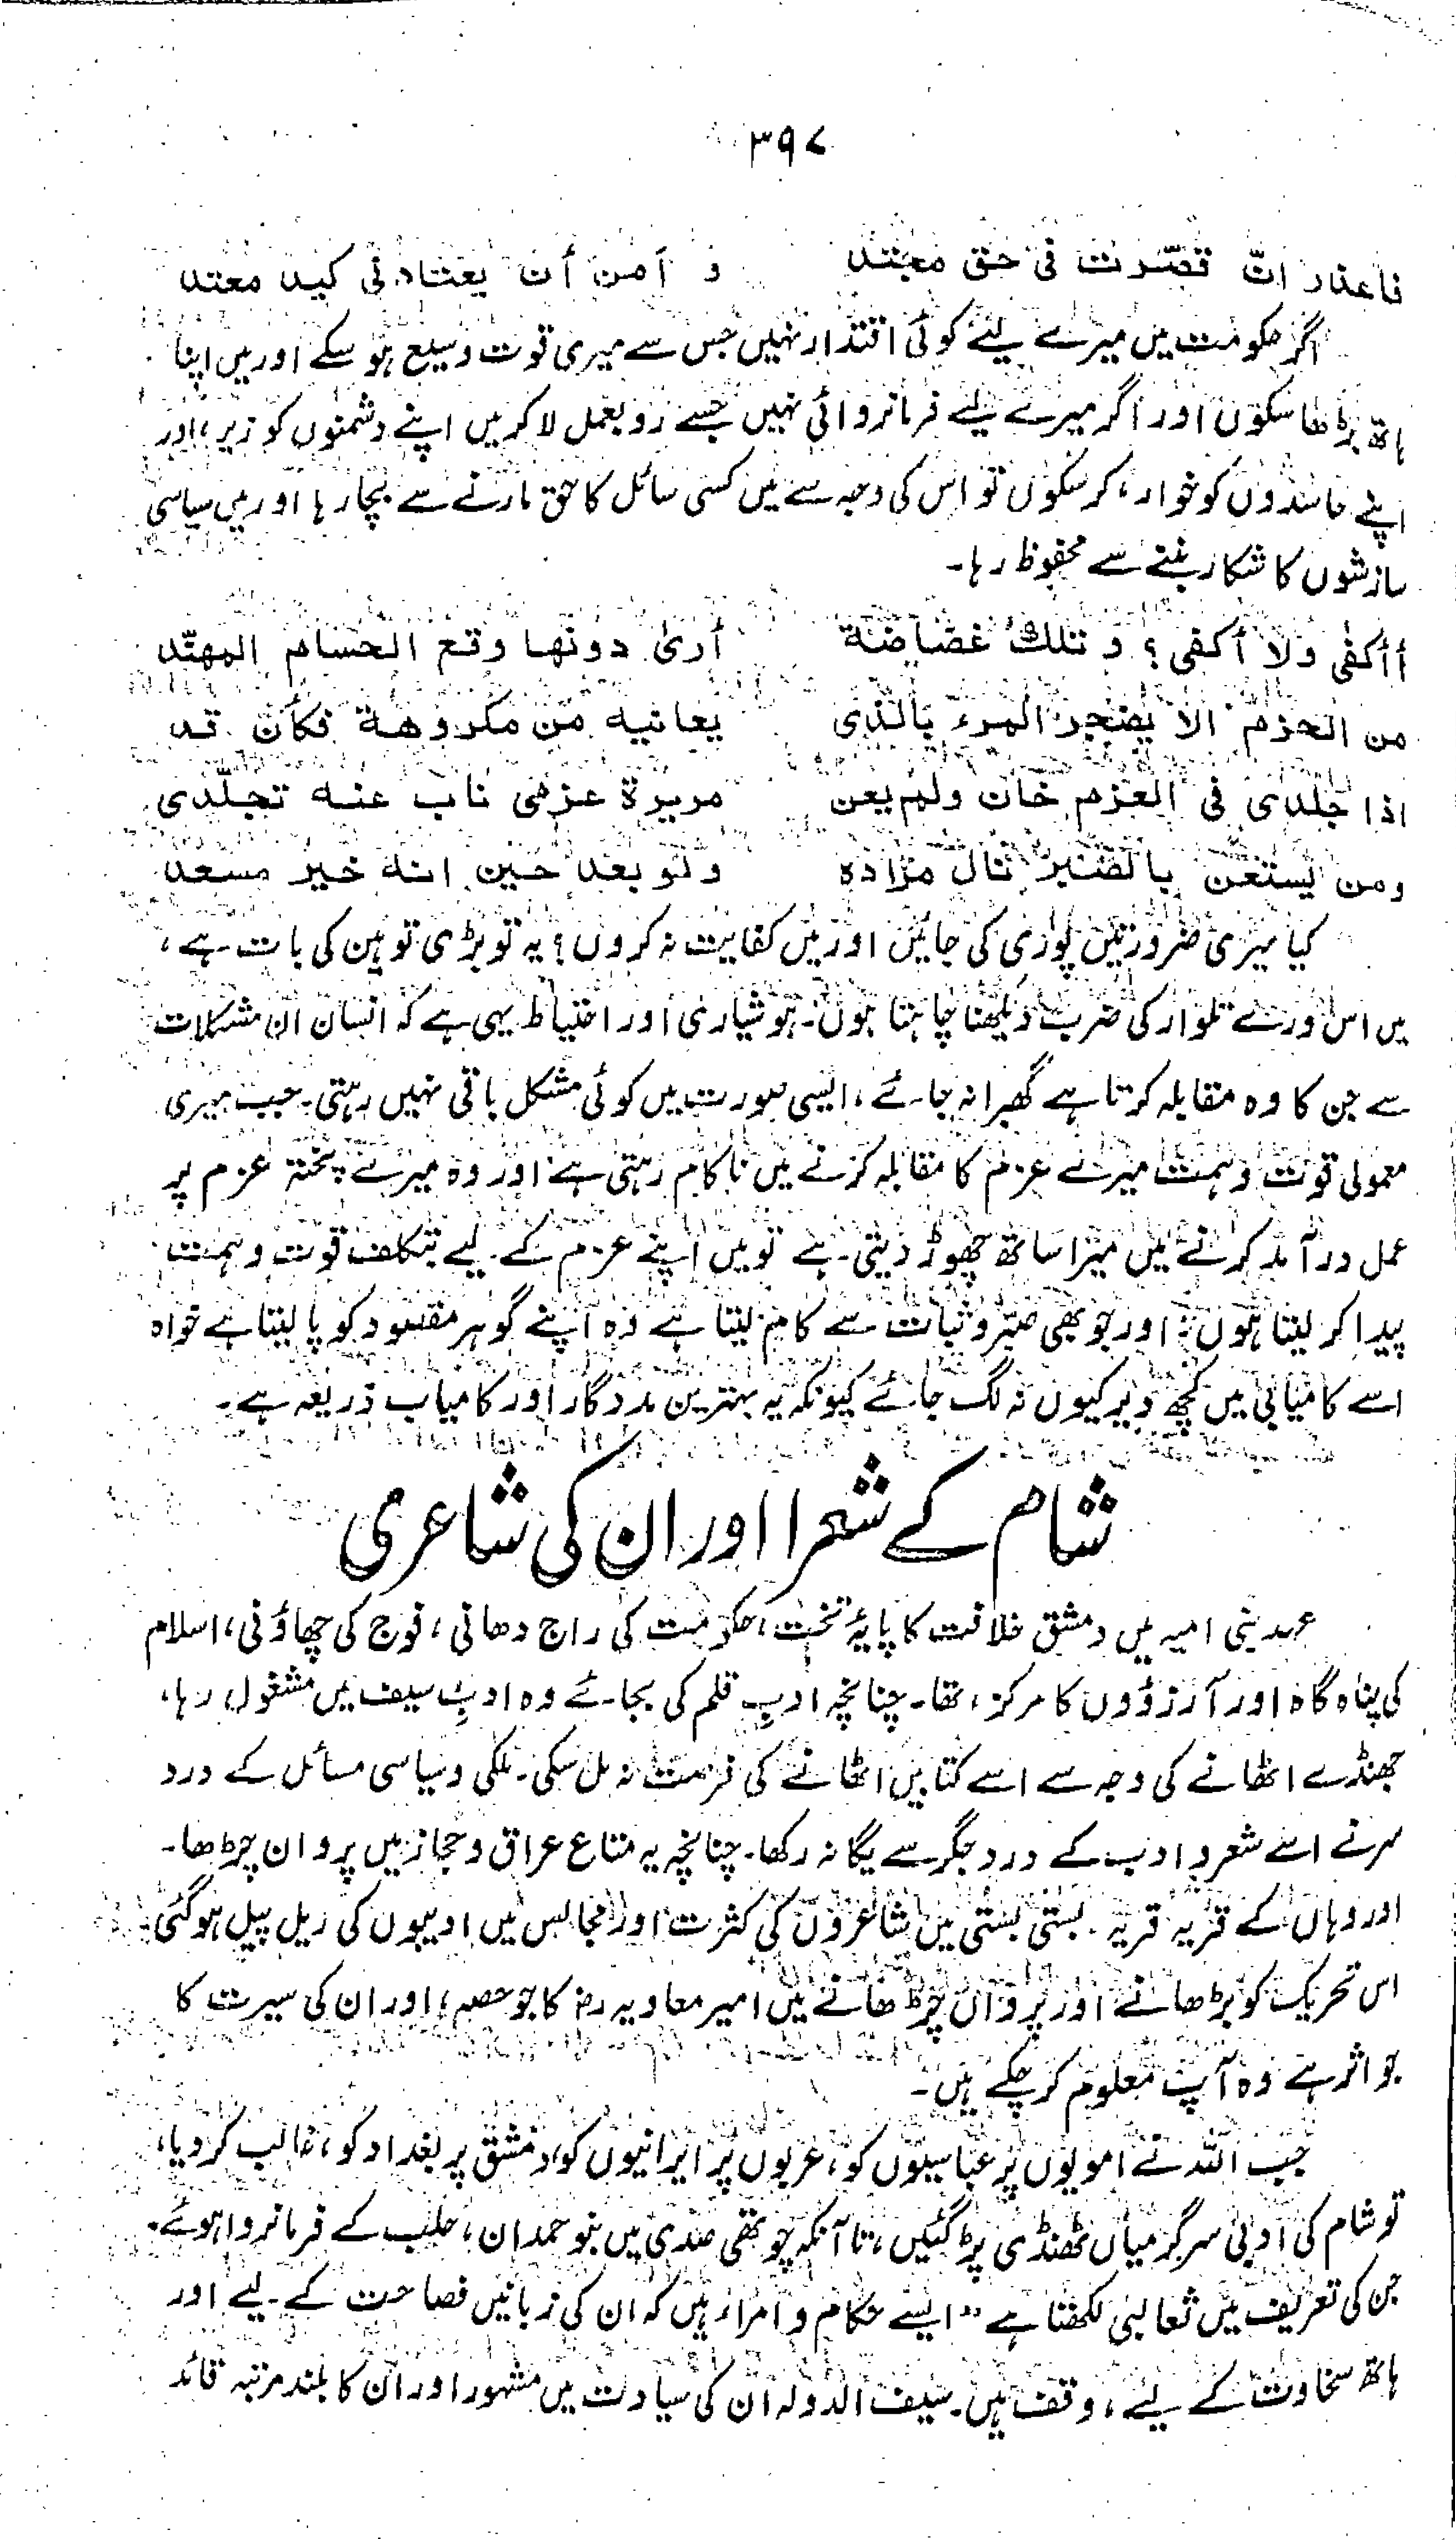 ۳۹۷
فاعذار انّ قصّرت فی حق مجتد و آمن أن یعتادنی کید معتد
اگر حکومت میں میرے لیئے کوئی اقتدار نہیں جس سے میری قوت وسیع ہو سکے اور میں اپنا
ہاتھ بڑھا سکوں اور اگر میرے لیے فرمانروائی نہیں جسے رو بعمل لا کر میں اپنے دشمنوں کو زیر، اور
اپنے حاسدوں کو خوار، کر سکوں تو اس کی وجہ سے میں کسی سائل کا حق مارنے سے بچا رہا اور میں سیاسی
سازشوں کا شکار بننے سے محفوظ رہا۔
أأکفی ولا أکفی؟ و تلك غضاضة أری دونها وقع الحسام المهنّد
من الحزم الا یضجر المرء بالذی یعانیه من مکروهة فکأن قد
اذا جلدی فی العزم خان ولم یعن مریرة عزمی ناب عنه تجلّدی
ومن یستعن بالصبر نال مراده ولو بعد حین انه خیر مسعد
کیا میری ضرورتیں پوری کی جائیں اور میں کفایت نہ کروں؟ یہ تو بڑی توہین کی بات ہے،
میں اس ورے تلوار کی ضرب دیکھنا چاہتا ہوں۔ ہوشیاری اور احتیاط یہی ہے کہ انسان ان مشکلات
سے جن کا وہ مقابلہ کرتا ہے گھبرا نہ جائے، ایسی صورت میں کوئی مشکل باقی نہیں رہتی۔ جب میری
معمولی قوت و ہمت میرے عزم کا مقابلہ کرنے میں ناکام رہتی ہے اور وہ میرے پختہ عزم پر
عمل درآمد کرنے میں میرا ساتھ چھوڑ دیتی ہے تو میں اپنے عزم کے لیے بتکلف قوت و ہمت
پیدا کر لیتا ہوں؛ اور جو بھی صبر و ثبات سے کام لیتا ہے وہ اپنے گوہر مقصود کو پا لیتا ہے خواہ
اسے کامیابی میں کچھ دیر کیوں نہ لگ جائے کیونکہ یہ بہترین مددگار اور کامیاب ذریعہ ہے۔
شام کے شعرا اور ان کی شاعری
عہد بنی امیہ میں دمشق خلافت کا پایۂ تخت، حکومت کی راج دھانی، فوج کی چھاؤنی، اسلام
کی پناہ گاہ اور آرزؤوں کا مرکز، تھا۔ چنانچہ ادبِ قلم کی بجائے وہ ادبِ سیف میں مشغول رہا،
جھنڈے اٹھانے کی وجہ سے اسے کتابیں اٹھانے کی فرصت نہ مل سکی۔ ملکی و سیاسی مسائل کے درد
سر نے اسے شعر و ادب کے درد جگر سے یگانہ رکھا۔ چنانچہ یہ متاع عراق و حجاز میں پروان چڑھا۔
اور وہاں کے قریہ قریہ۔ بستی بستی میں شاعروں کی کثرت اور مجالس میں ادیبوں کی ریل پیل ہوگئی۔
اس تحریک کو بڑھانے اور پروان چڑھانے میں امیر معاویہ رضہ کا جو حصہ، اور ان کی سیرت کا
جو اثر ہے وہ آپ معلوم کر چکے ہیں۔
جب اللہ نے امویوں پر عباسیوں کو، عربوں پر ایرانیوں کو، دمشق پر بغداد کو، غالب کر دیا،
تو شام کی ادبی سرگرمیاں ٹھنڈی پڑ گئیں، تا آنکہ چوتھی صدی میں بنو حمدان، حلب کے فرمانروا ہوئے۔
جن کی تعریف میں ثعالبی لکھتا ہے "ایسے حکام و امراء ہیں کہ ان کی زبانیں فصاحت کے لیے اور
ہاتھ سخاوت کے لیے، وقف ہیں۔ سیف الدولہ ان کی سیادت میں مشہور اور ان کا بلند مرتبہ قائد